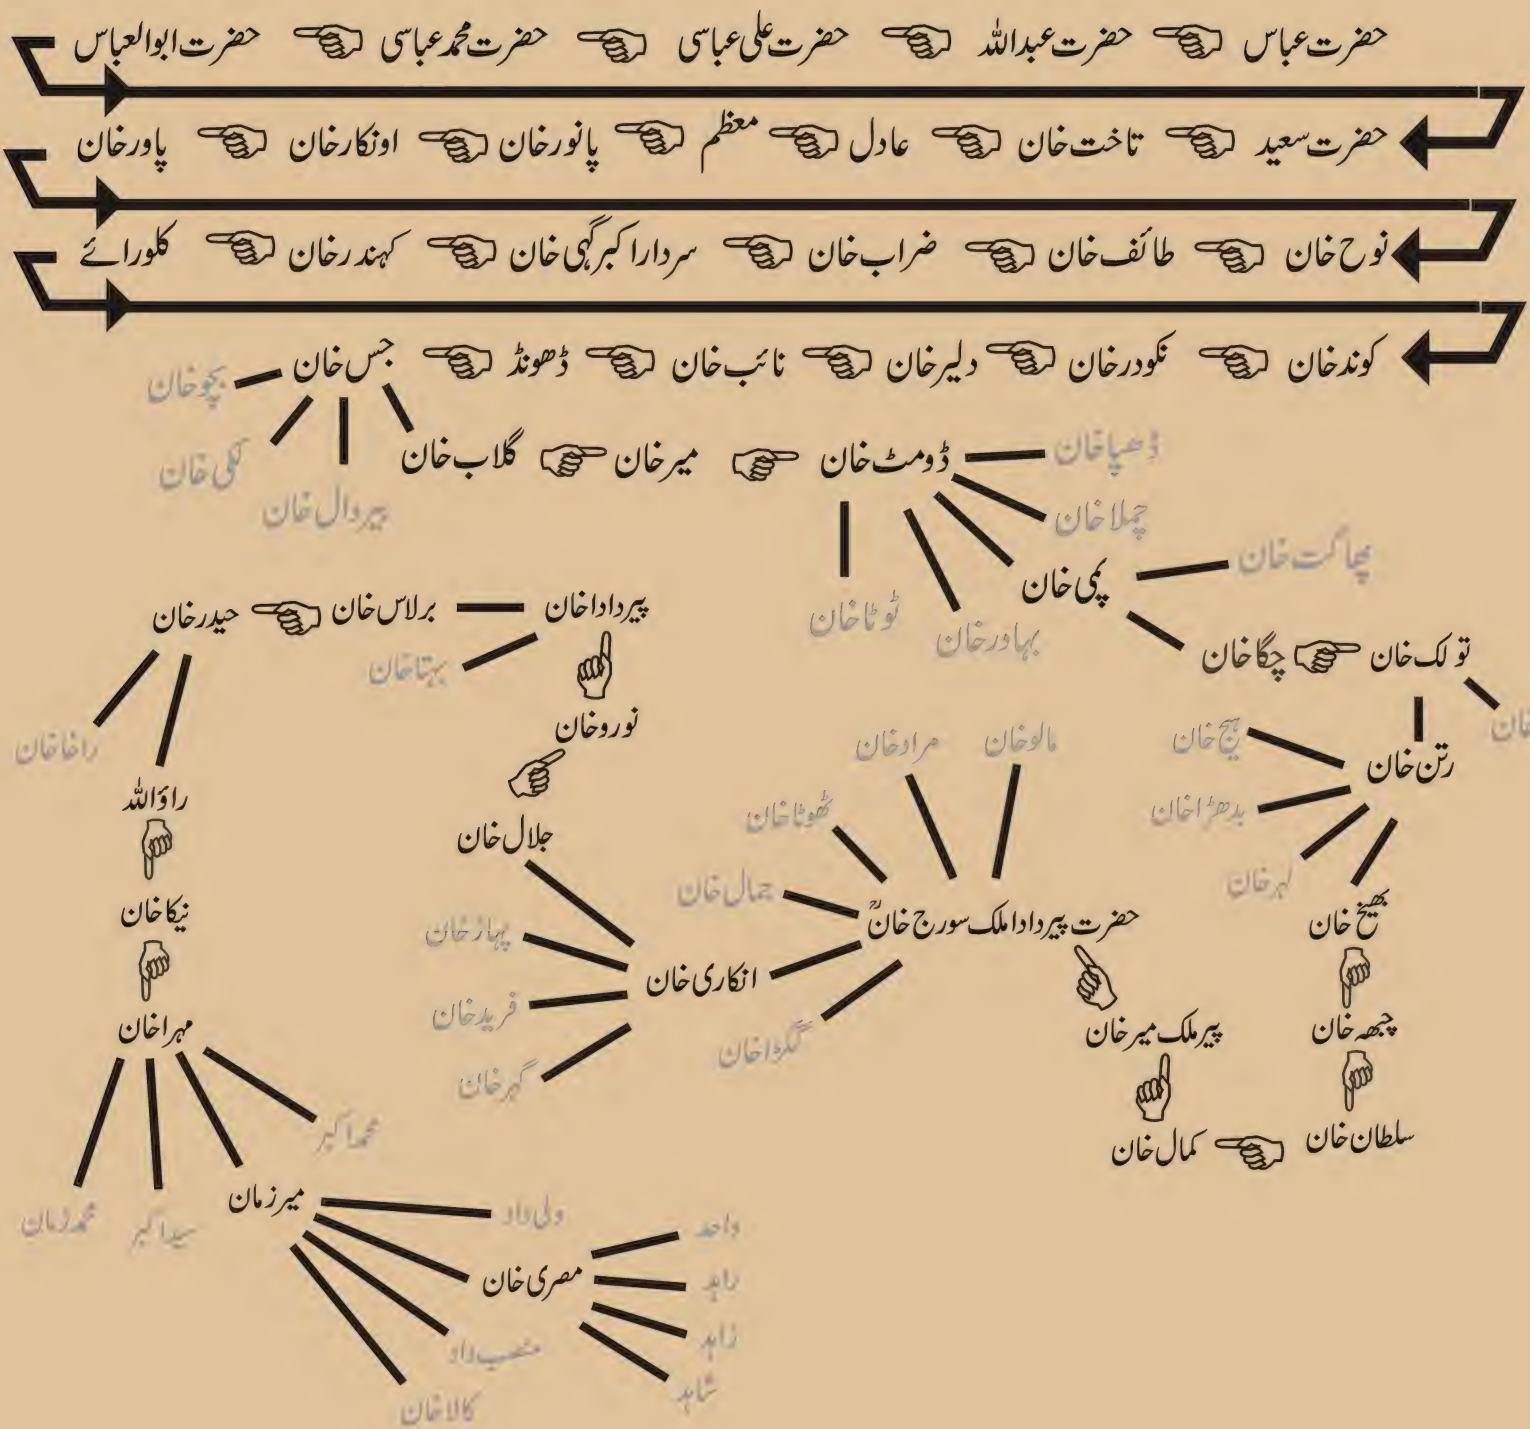 حضرت عباس حضرت عبداللہ حضرت علی عباسی حضرت محمد عباسی حضرت ابوالعباس
حضرت سعید تاخت خان عادل معظم پانور خان اونکار خان پاور خان
نوح خان طائف خان ضراب خان سردار اکبر گہی خان کہندر خان کلورائے
کوند خان نکودر خان دلیر خان نائب خان ڈھونڈ جس خان
بچو خان
لکی خان
پیر دال خان
گلاب خان میر خان ڈومٹ خان ڈھپا خان
چملا خان
پمی خان پھاگت خان
بہادر خان
ٹوٹا خان
چگا خان تولک خان
خان
رتن خان
ہیج خان
بدھڑا خان
لہر خان
بھیخ خان
چبھہ خان
سلطان خان کمال خان
پیر ملک میر خان
حضرت پیر دادا ملک سورج خانؒ
مالو خان
مراد خان
ٹھوٹا خان
جمال خان
انکاری خان
گکڑا خان
جلال خان
پہاڑ خان
فرید خان
گہر خان
نورو خان
پیر دادا خان برلاس خان حیدر خان
بہتا خان
راخا خان
راؤ اللہ
نیکا خان
مہرا خان
محمد اکبر
میر زمان
سید اکبر
محمد زمان
ولی داد
مصری خان
منصب داد
کالا خان
واحد
راہد
زاہد
شاہد